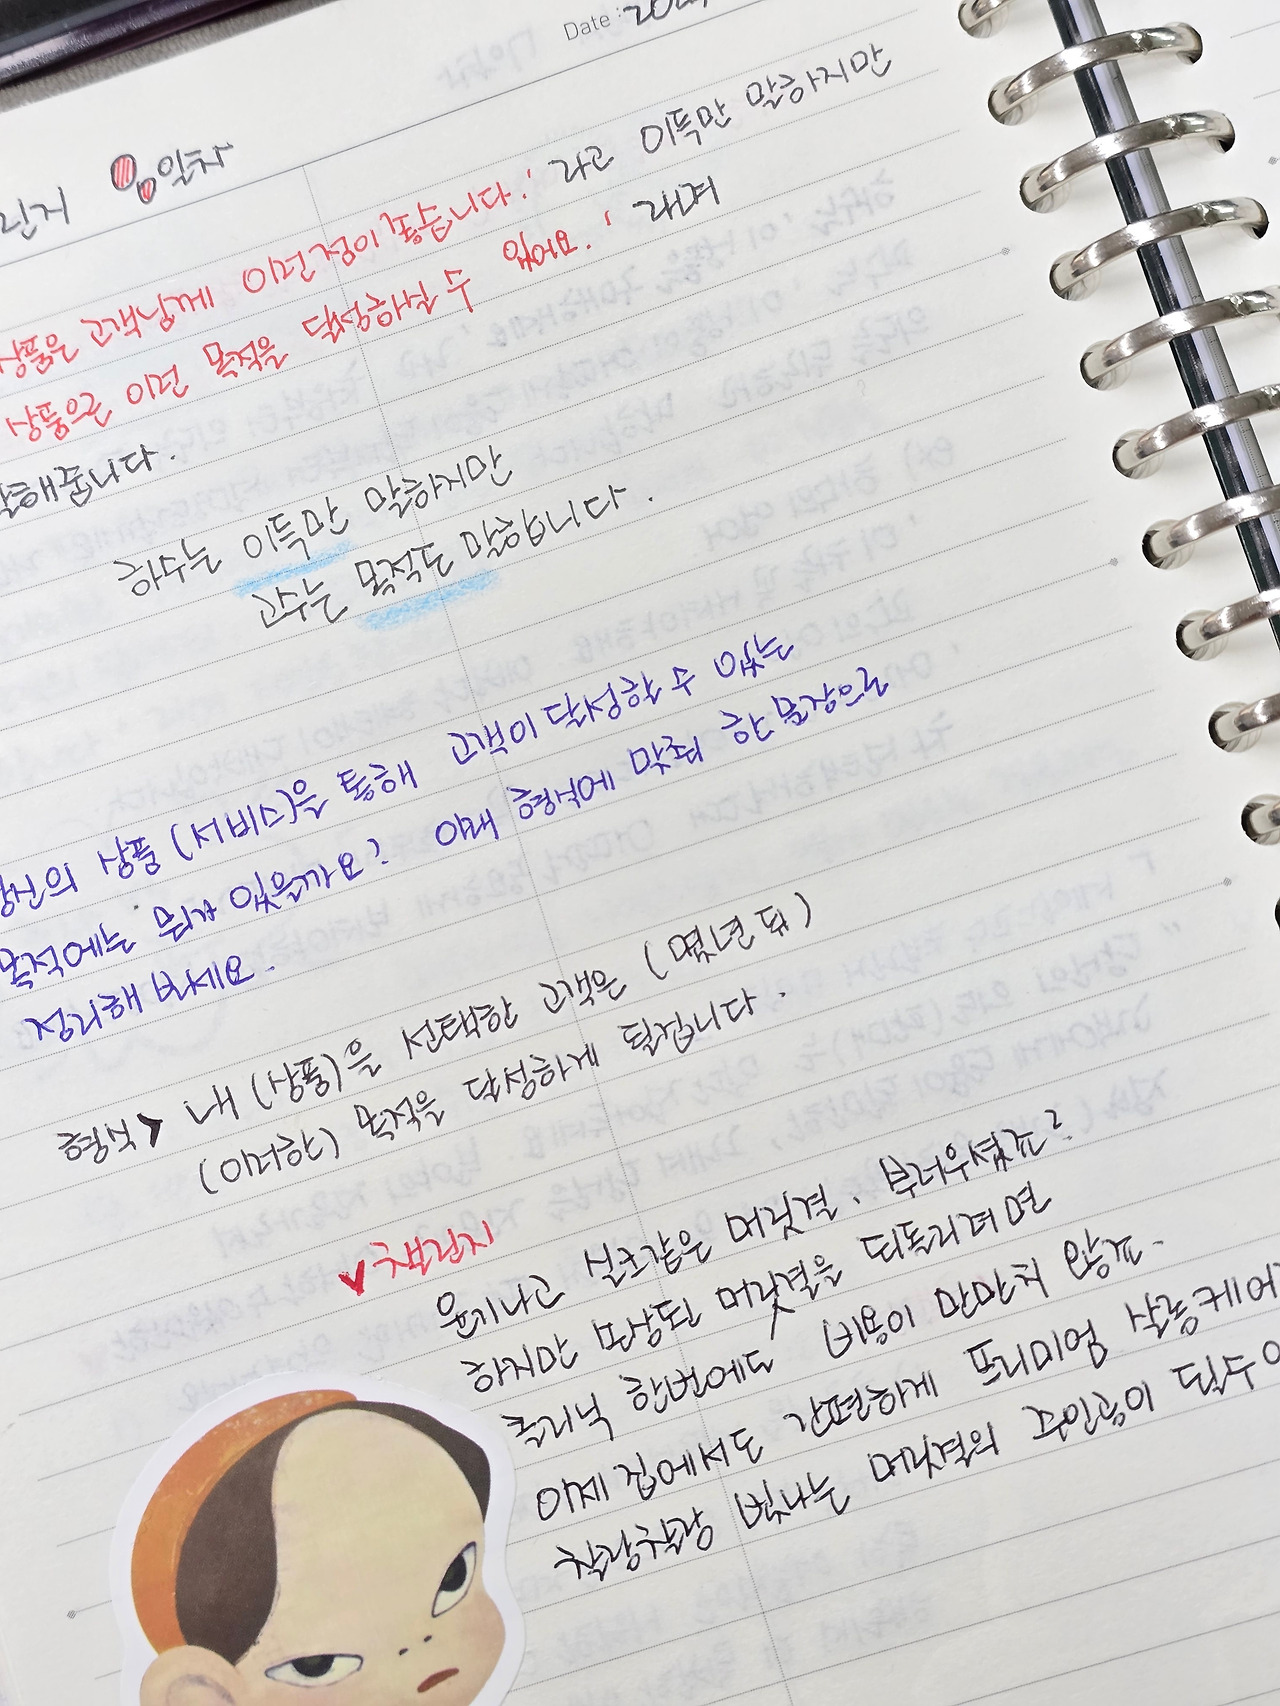 Date : 202
린지 일차
상품은 고객님께 이런점이 좋습니다.' 라고 이득만 말하지만
상품으로 이런 목적을 달성하실 수 있어요.' 라며
말해줍니다.
하수는 이득만 말하지만
고수는 목적도 말합니다.
당신의 상품 (서비스)을 통해 고객이 달성할 수 있는
목적에는 뭐가 있을까요? 아래 형식에 맞춰 한 문장으로
정리해 보세요.
형식> 내 (상품)을 선택한 고객은 (몇년 뒤)
(이러한) 목적을 달성하게 될겁니다.
✓ 챌린지
윤기나고 실크같은 머릿결. 부러우셨죠?
하지만 손상된 머릿결을 되돌리려면
클리닉 한번에도 비용이 만만치 않죠.
이제 집에서도 간편하게 프리미엄 살롱케어
찰랑찰랑 빛나는 머릿결의 주인공이 될수